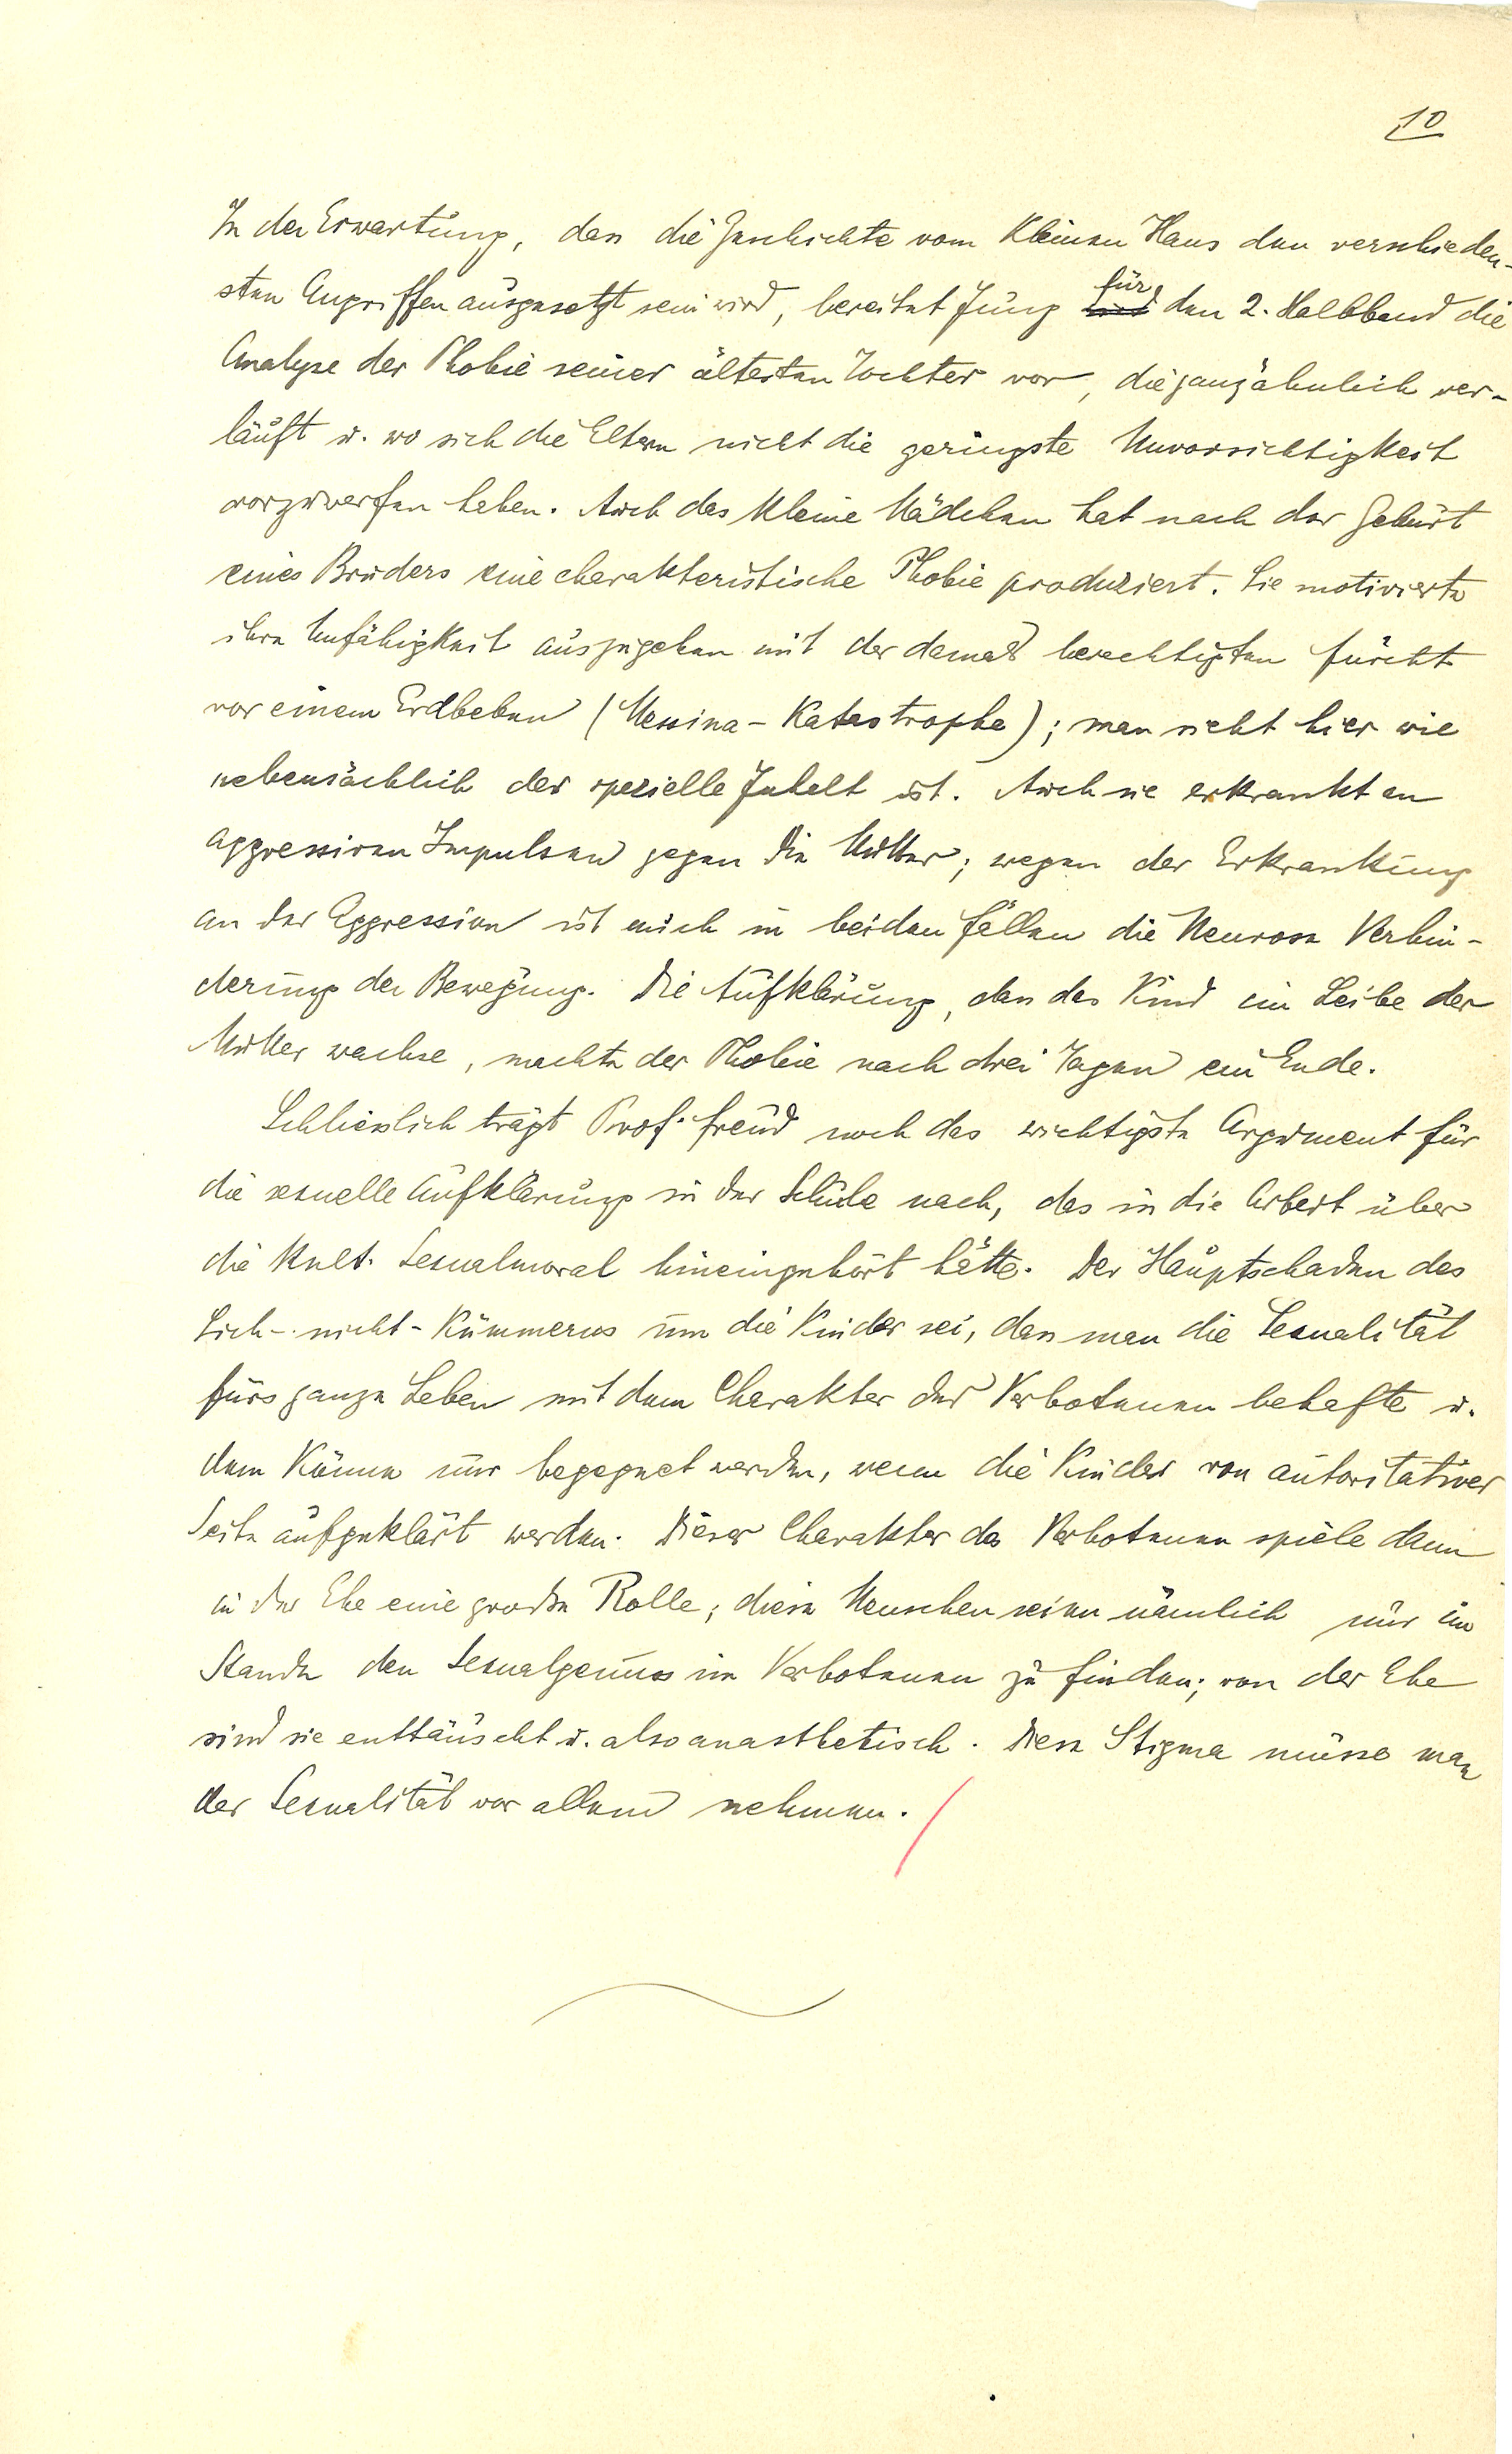 10
In der Erwartung, dass die Geschichte vom Kleinen Hans den verschieden-
sten Angriffen ausgesetzt sein wird, bereitet Jung für den 2. Halbband die
Analyse der Phobie seiner ältesten Tochter vor, die ganz ähnlich ver-
läuft u. wo sich die Eltern nicht die geringste Unvorsichtigkeit
vorzuwerfen haben. Auch das kleine Mädchen hat nach der Geburt
eines Bruders eine charakteristische Phobie produziert. Sie motivierte
ihre Unfähigkeit auszugehen mit der damals berechtigten Furcht
vor einem Erdbeben (Messina-Katastrophe); man sieht hier wie
nebensächlich der spezielle Inhalt ist. Auch sie erkrankt an
aggressiven Impulsen gegen die Mutter; wegen der Erkrankung
an der Aggression ist auch in beiden Fällen die Neurose Verhin-
derung der Bewegung. Die Aufklärung, dass das Kind im Leibe der
Mutter wachse, machte der Phobie nach drei Tagen ein Ende.
Schliesslich trägt Prof. Freud noch das wichtigste Argument für
die sexuelle Aufklärung in der Schule nach, das in die Arbeit über
die kult. Sexualmoral hineingehört hätte. Der Hauptschaden des
Sich-nicht-Kümmerns um die Kinder sei, dass man die Sexualität
fürs ganze Leben mit dem Charakter des Verbotenen behafte u.
dem könne nur begegnet werden, wenn die Kinder von autoritativer
Seite aufgeklärt werden. Dieser Charakter des Verbotenen spiele dann
in der Ehe eine große Rolle; diese Menschen seien nämlich nur im
Stande den Sexualgenuss im Verbotenen zu finden; von der Ehe
sind sie enttäuscht u. also anasthetisch. Dies Stigma müsse man
der Sexualität vor allem nehmen.